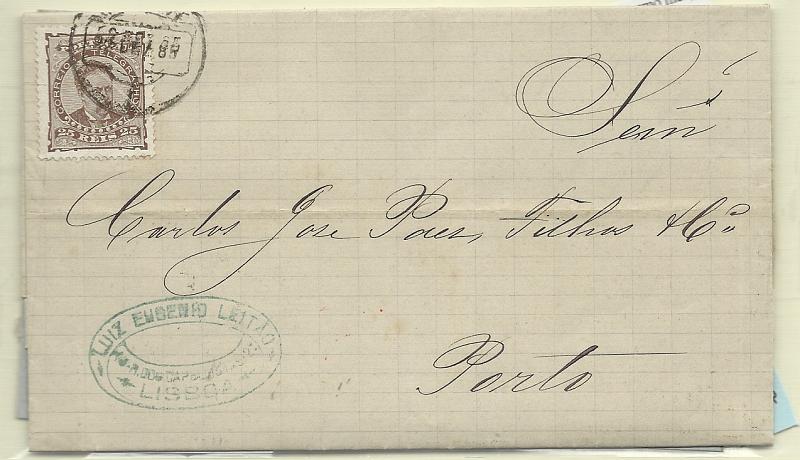 CORREIOS E TELEGRAPHOS
25 REIS 25
Senr
Carlos Jose Paes, Filhos & Ca
Porto
LUIZ EUGENIO LEITÃO
LISBOA